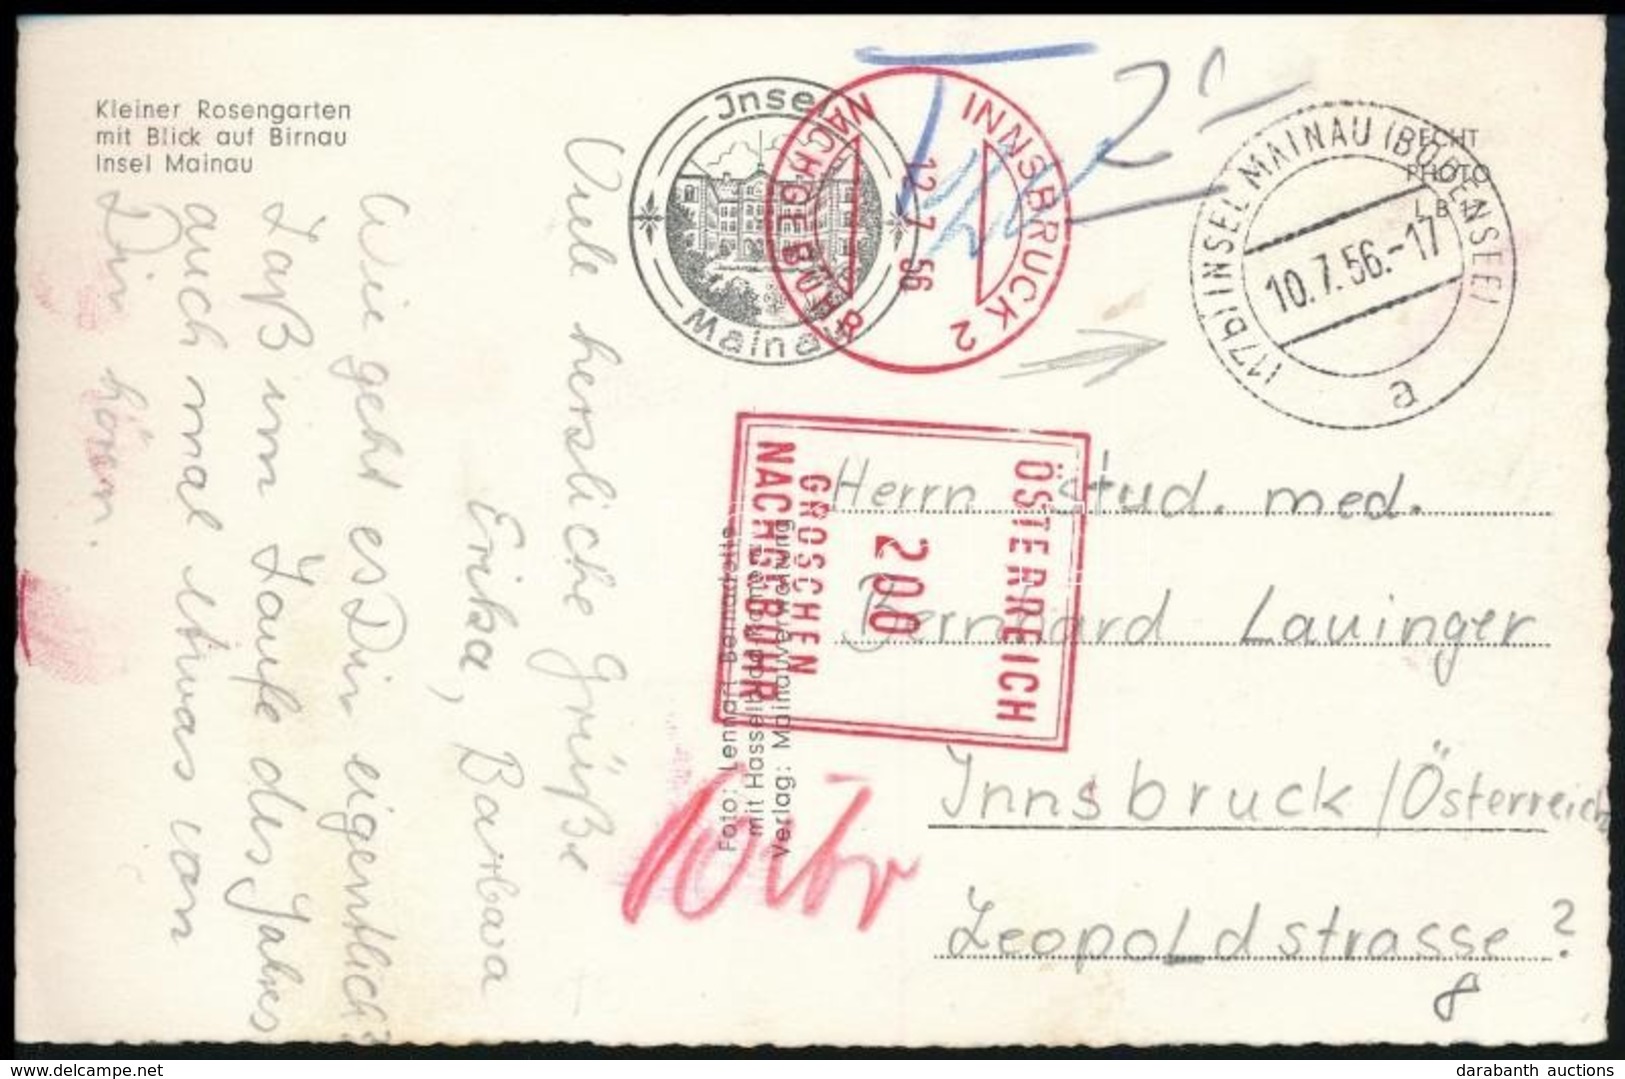 Kleiner Rosengarten
mit Blick auf Birnau
Insel Mainau
Viele herzliche Grüße
Erika, Barbara
Wie geht es Dir eigentlich?
Laß im Laufe des Jahres
auch mal etwas von
Dir hören.
Jnsel
Mainau
INNSBRUCK 2
12.7.56
NACHGEBÜHR
T
2
(17b) INSEL MAINAU (BODENSEE)
10.7.56.-17
a
ECHT
PHOTO
L B 1
ÖSTERREICH
200
GROSCHEN
NACHGEBÜHR
Foto: Lennart Bernadotte
mit Hasselblad
Verlag: Mainauverwaltung
Herrn stud. med.
Bernhard Lauinger
Innsbruck/Österreich
Leopoldstrasse ?
8
www.delcampe.net
darabanth auctions